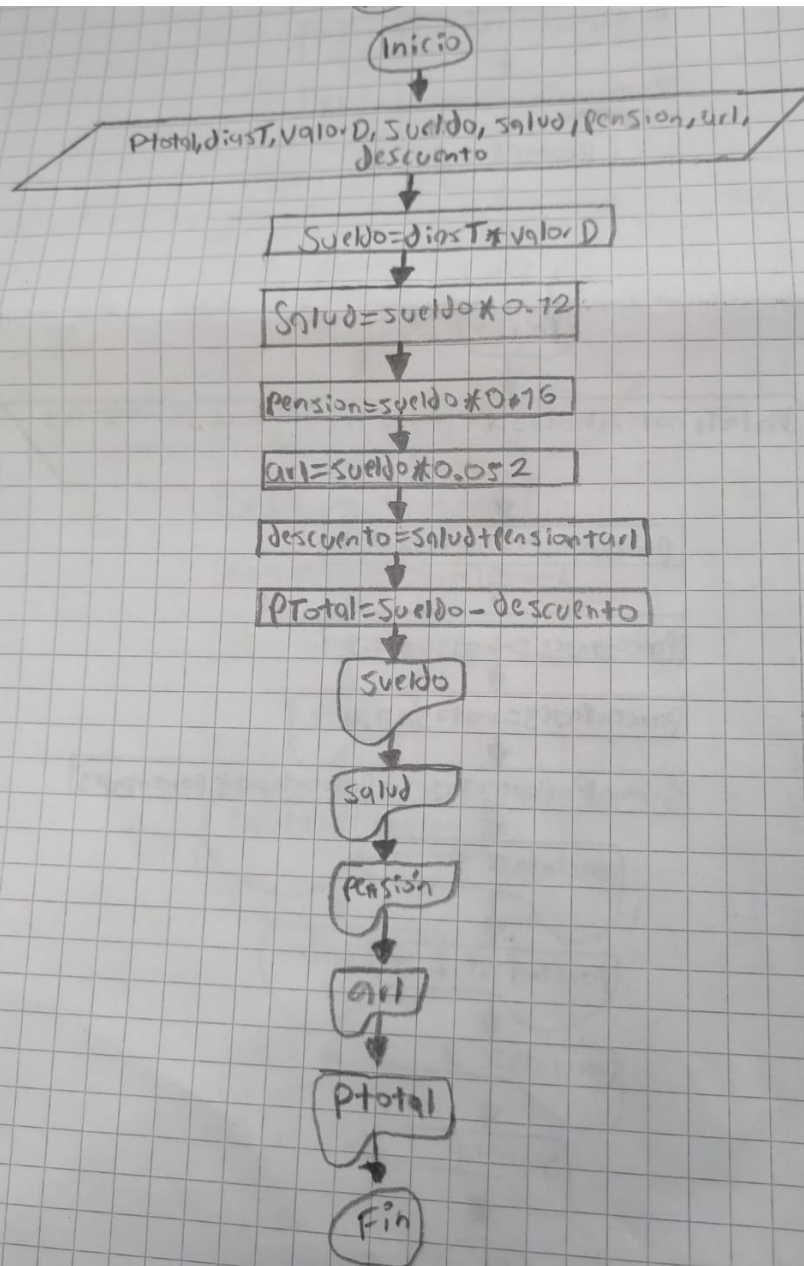 Inicio
Ptotal, diasT, valorD, sueldo, salud, pension, arl,
descuento
Sueldo=diasT*valorD
Salud=sueldo*0.12
Pension=sueldo*0.16
arl=sueldo*0.052
descuento=salud+pension+arl
PTotal=sueldo-descuento
sueldo
salud
pensión
arl
Ptotal
Fin